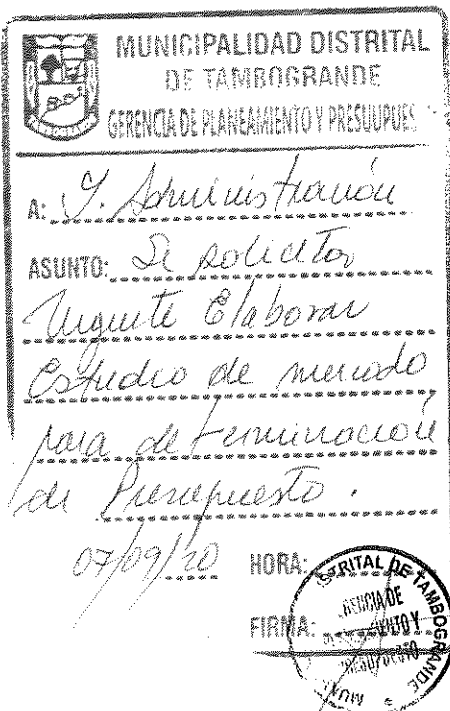 MUNICIPALIDAD DISTRITAL
DE TAMBOGRANDE
GERENCIA DE PLANEAMIENTO Y PRESUPUES
A: G. Administración
ASUNTO: Se solicita
Urgente Elaborar
Estudio de mercado
para determinación
de Presupuesto.
07/09/20 HORA:
FIRMA:
DISTRITAL DE TAMBOGRANDE
GERENCIA DE
PLANEAMIENTO Y
PRESUPUESTO
MUNI